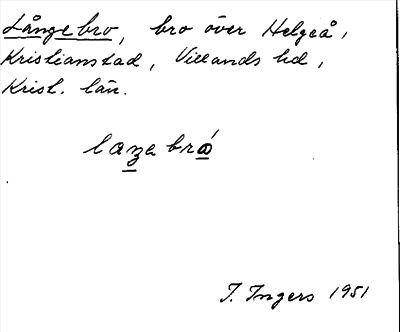 Långebro, bro över Helgeå,
Kristianstad, Villands hd,
Krist. län.
laŋebro
I. Ingers 1951